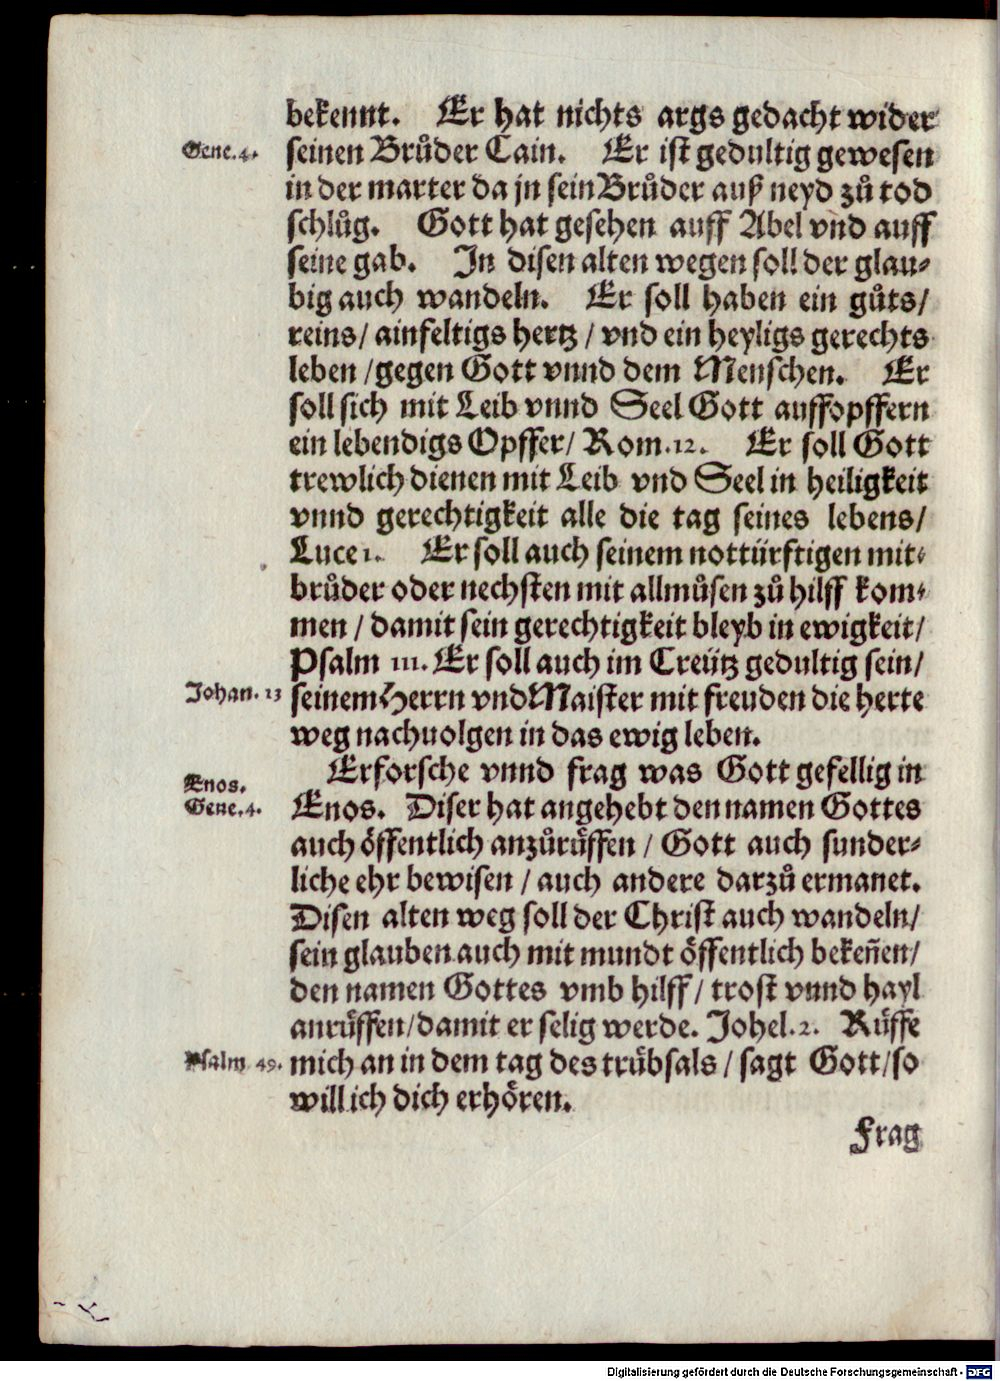 bekennt. Er hat nichts args gedacht wider
Gene.4.
seinen Brůder Cain. Er ist gedultig gewesen
in der marter da jn sein Brůder auß neyd zů tod
schlůg. Gott hat gesehen auff Abel vnd auff
seine gab. In disen alten wegen soll der glau-
big auch wandeln. Er soll haben ein gůts/
reins/ ainfeltigs hertz / vnd ein heyligs gerechts
leben /gegen Gott vnnd dem Menschen. Er
soll sich mit Leib vnnd Seel Gott auffopffern
ein lebendigs Opffer/ Rom.12. Er soll Gott
trewlich dienen mit Leib vnd Seel in heiligkeit
vnnd gerechtigkeit alle die tag seines lebens/
Luce 1. Er soll auch seinem nottürftigen mit-
brůder oder nechsten mit allmůsen zů hilff kom-
men / damit sein gerechtigkeit bleyb in ewigkeit/
Psalm 111. Er soll auch im Creütz gedultig sein/
Johan. 13
seinem Herrn vnd Maister mit freuden die herte
weg nachuolgen in das ewig leben.
Erforsche vnnd frag was Gott gefellig in
Enos.
Gene.4.
Enos. Diser hat angehebt den namen Gottes
auch öffentlich anzůrůffen / Gott auch sunder-
liche ehr bewisen / auch andere darzů ermanet.
Disen alten weg soll der Christ auch wandeln/
sein glauben auch mit mundt öffentlich bekeñen/
den namen Gottes vmb hilff / trost vnnd hayl
anrůffen/damit er selig werde. Johel.2. Růffe
Psalm 49.
mich an in dem tag des trůbsals / sagt Gott/so
will ich dich erhören.
Frag
Digitalisierung gefördert durch die Deutsche Forschungsgemeinschaft - DFG